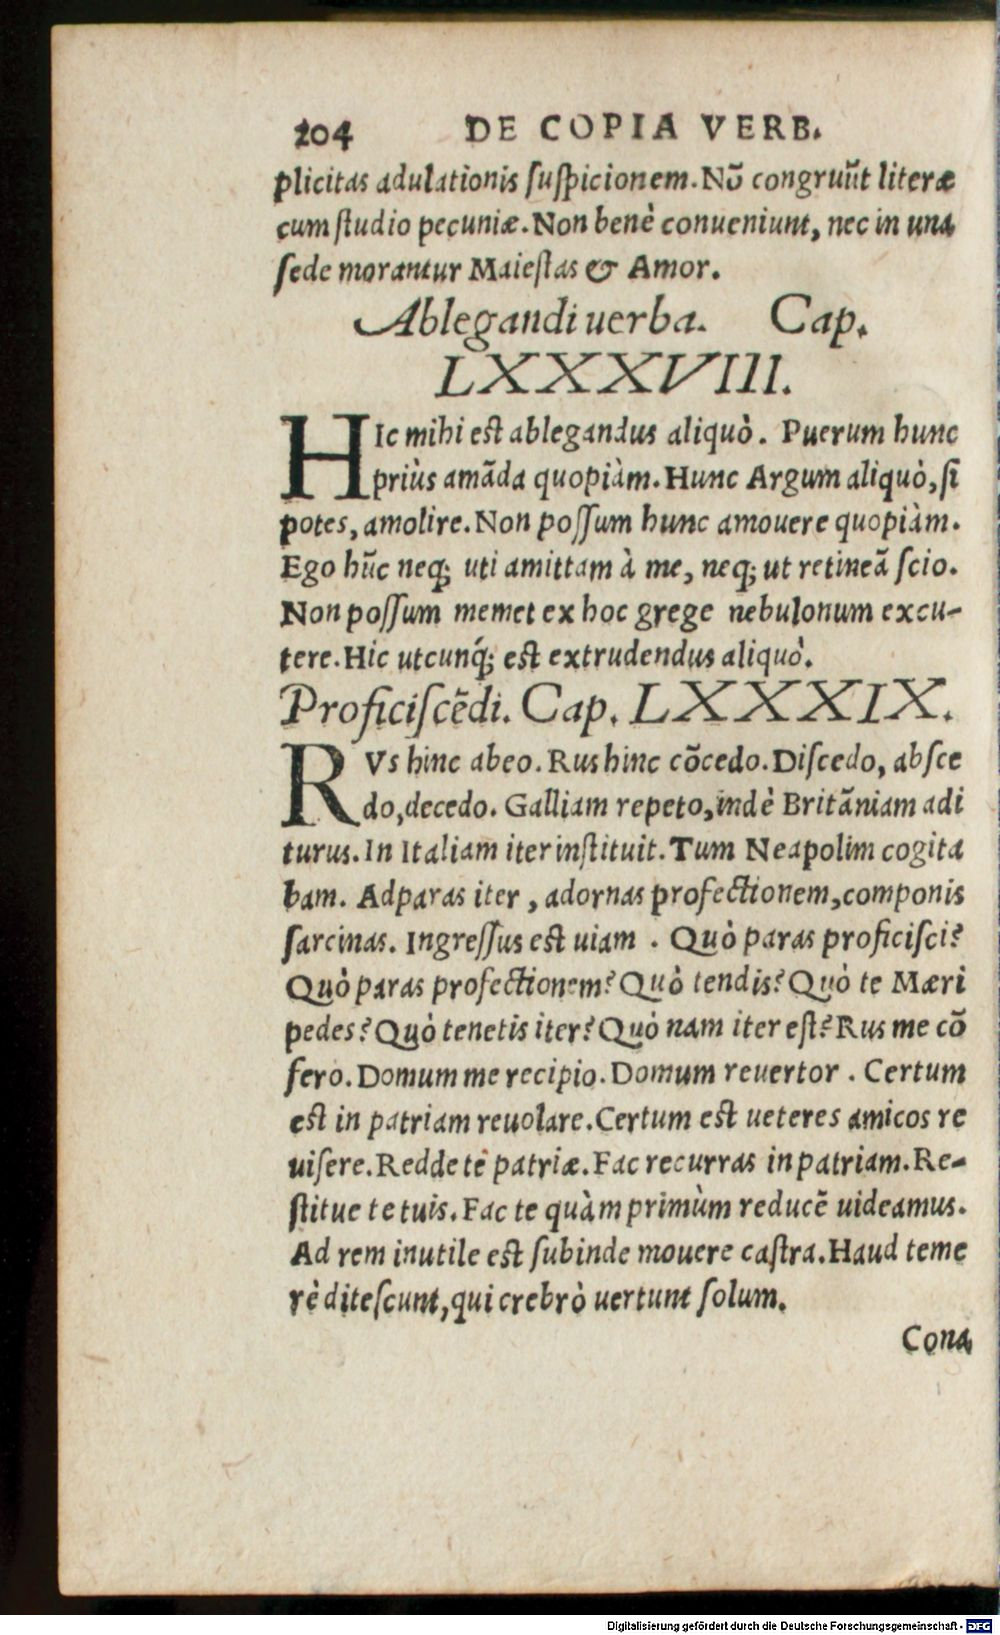 204 DE COPIA VERB.
plicitas adulationis ſuſpicionem. Nõ congruũt literæ
cum ſtudio pecuniæ. Non benè conueniunt, nec in una
ſede morantur Maieſtas & Amor.
Ablegandi uerba. Cap.
LXXXVIII.
HIc mihi eſt ablegandus aliquò. Puerum hunc
priùs amãda quopiàm. Hunc Argum aliquò, ſi
potes, amolire. Non poſſum hunc amouere quopiàm.
Ego hũc neq; uti amittam à me, neq; ut retineã ſcio.
Non poſſum memet ex hoc grege nebulonum excu-
tere. Hic utcunq́; eſt extrudendus aliquò.
Proficiſcẽdi. Cap. LXXXIX.
RVs hinc abeo. Rus hinc cõcedo. Diſcedo, abſce
do, decedo. Galliam repeto, indè Britãniam adi
turus. In Italiam iter inſtituit. Tum Neapolim cogita
bam. Adparas iter, adornas profectionem, componis
ſarcinas. Ingreſſus eſt uiam. Quò paras proficiſci?
Quò paras profectionem? Quò tendis? Quò te Mœri
pedes? Quò tenetis iter? Quò nam iter eſt? Rus me cõ
fero. Domum me recipio. Domum reuertor. Certum
eſt in patriam reuolare. Certum eſt ueteres amicos re
uiſere. Redde te patriæ. Fac recurras in patriam. Re-
ſtitue te tuis. Fac te quàm primùm reducẽ uideamus.
Ad rem inutile eſt ſubinde mouere caſtra. Haud teme
rè diteſcunt, qui crebrò uertunt ſolum.
Cona
Digitalisierung gefördert durch die Deutsche Forschungsgemeinschaft - DFG